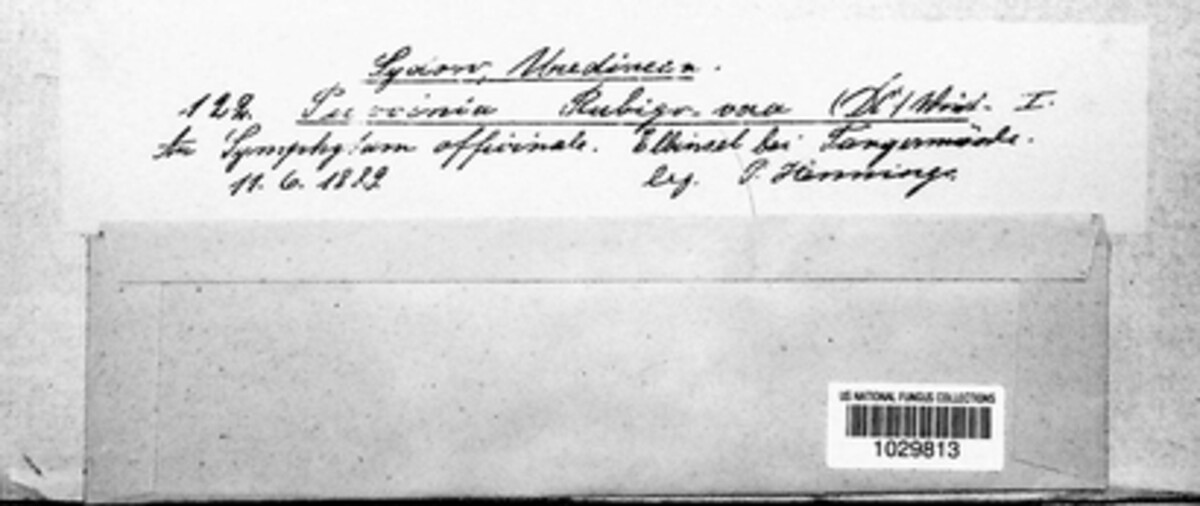 Sydow, Uredineen.
122. Puccinia Rubigo-vera (DC) Wint. I.
An Symphytum officinale. Elbinsel bei Tangermünde.
11. 6. 1889 leg. P. Hennings.
US NATIONAL FUNGUS COLLECTIONS
1029813